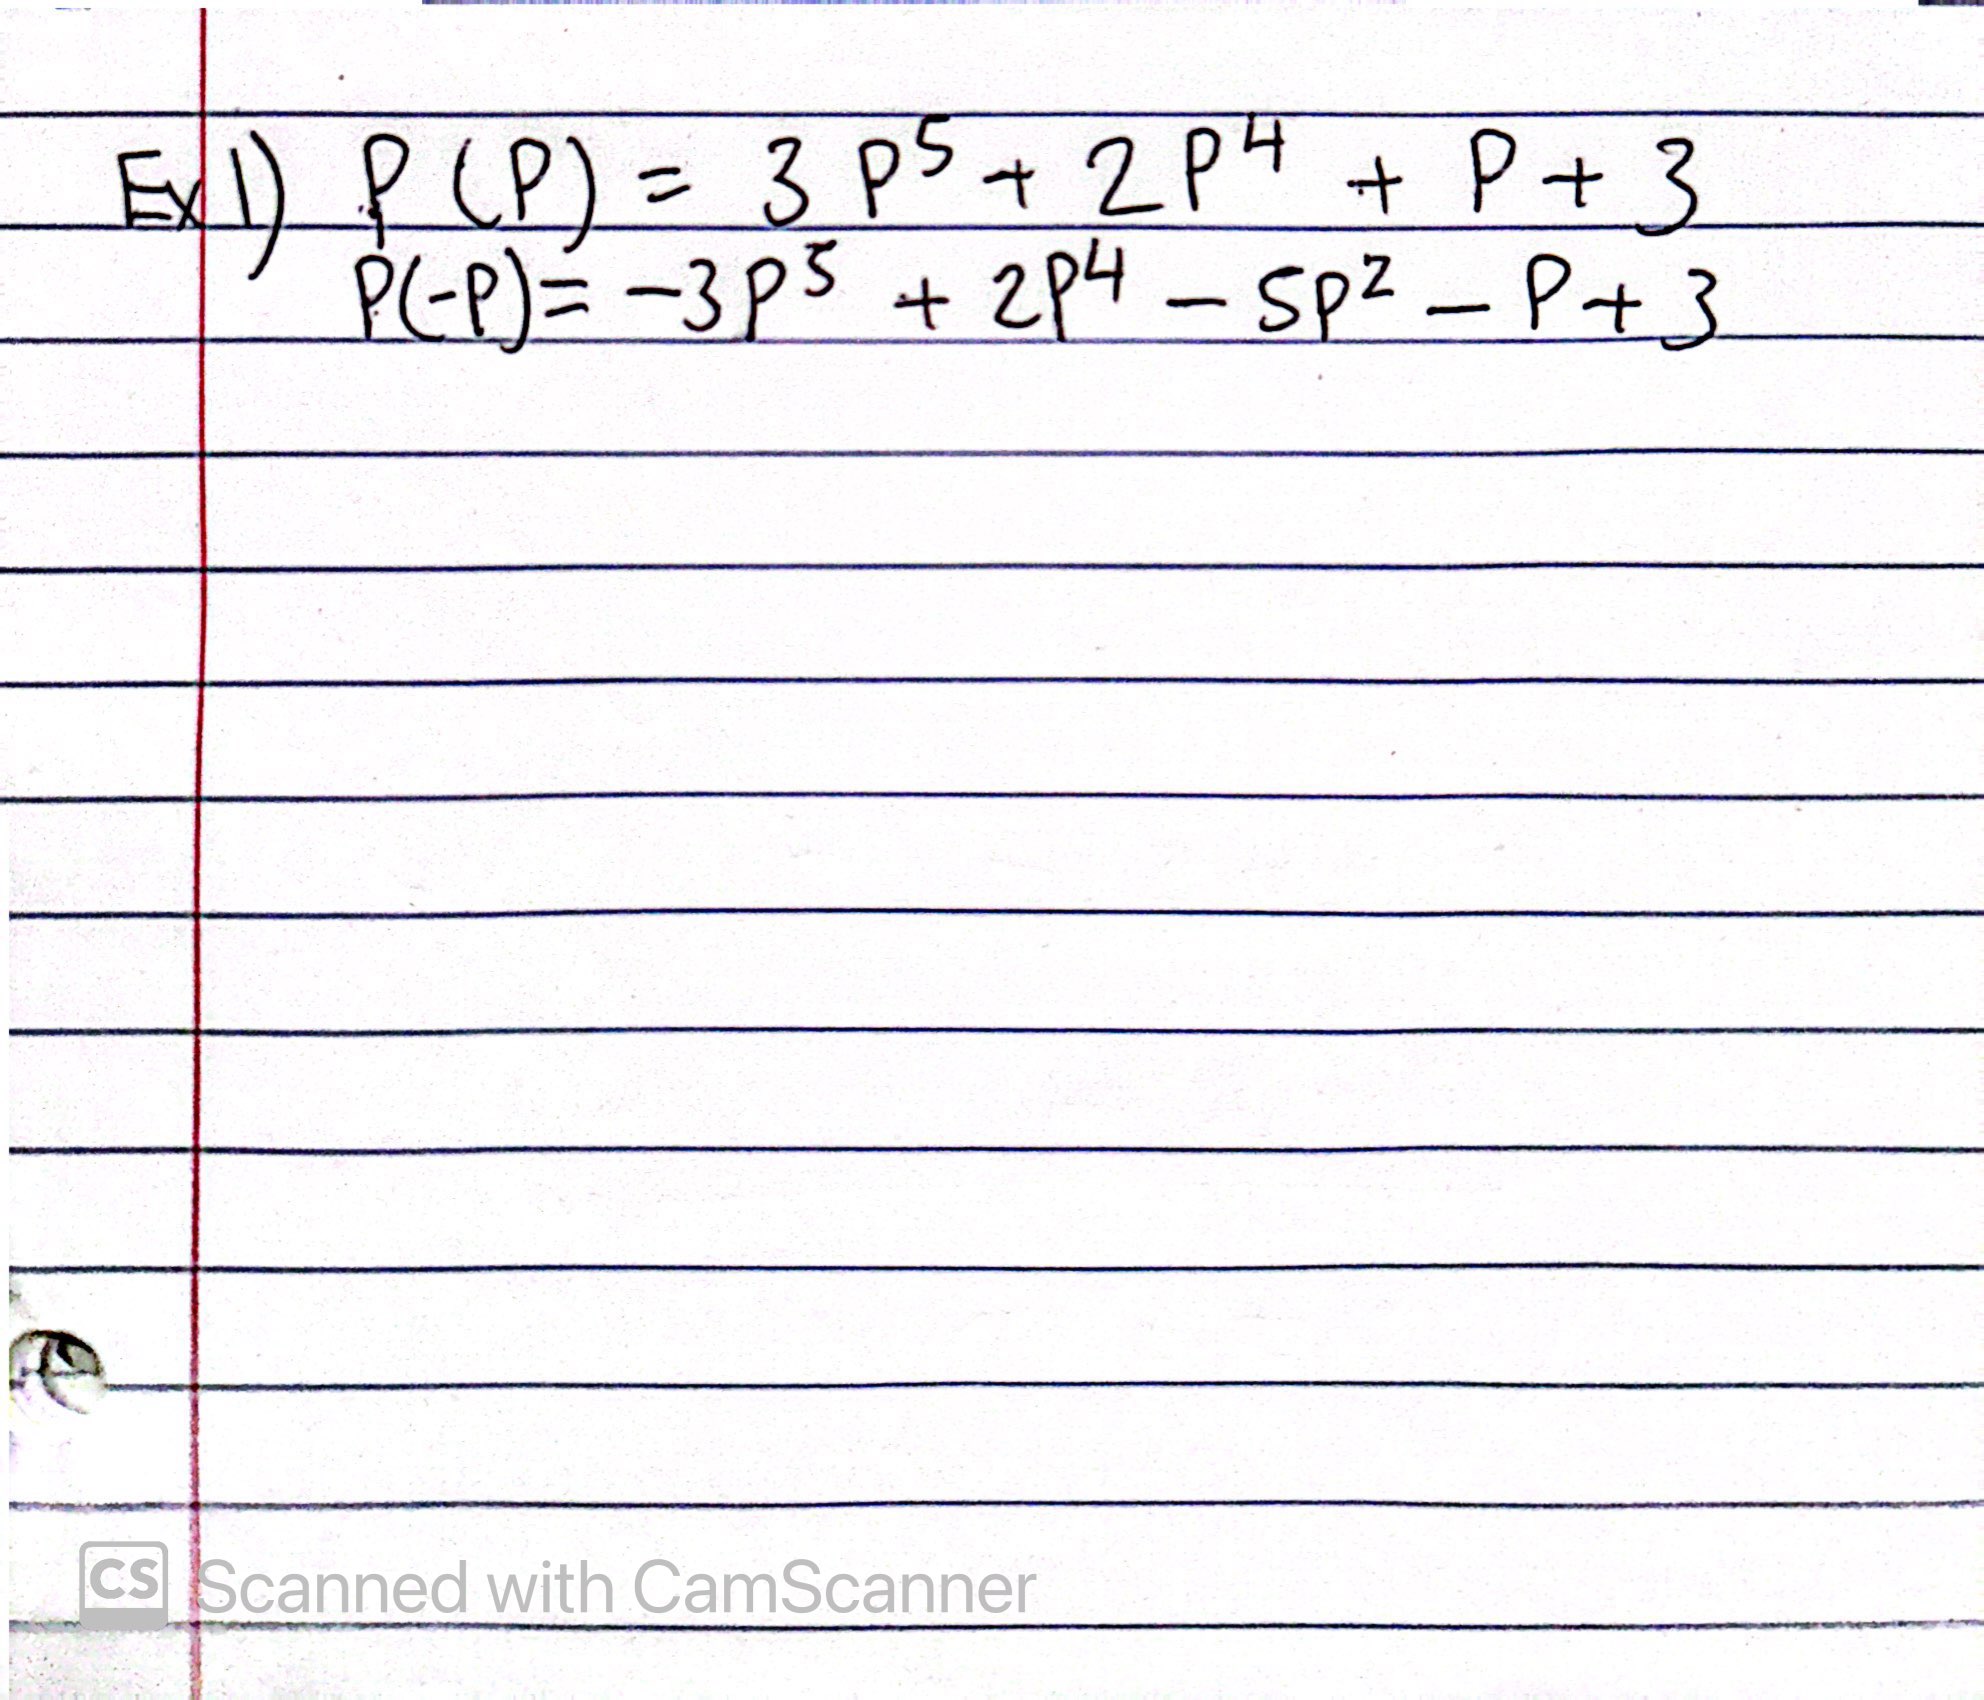 Ex 1) P(P) = 3P⁵ + 2P⁴ + P + 3
P(-P) = -3P⁵ + 2P⁴ - 5P² - P + 3
CS Scanned with CamScanner